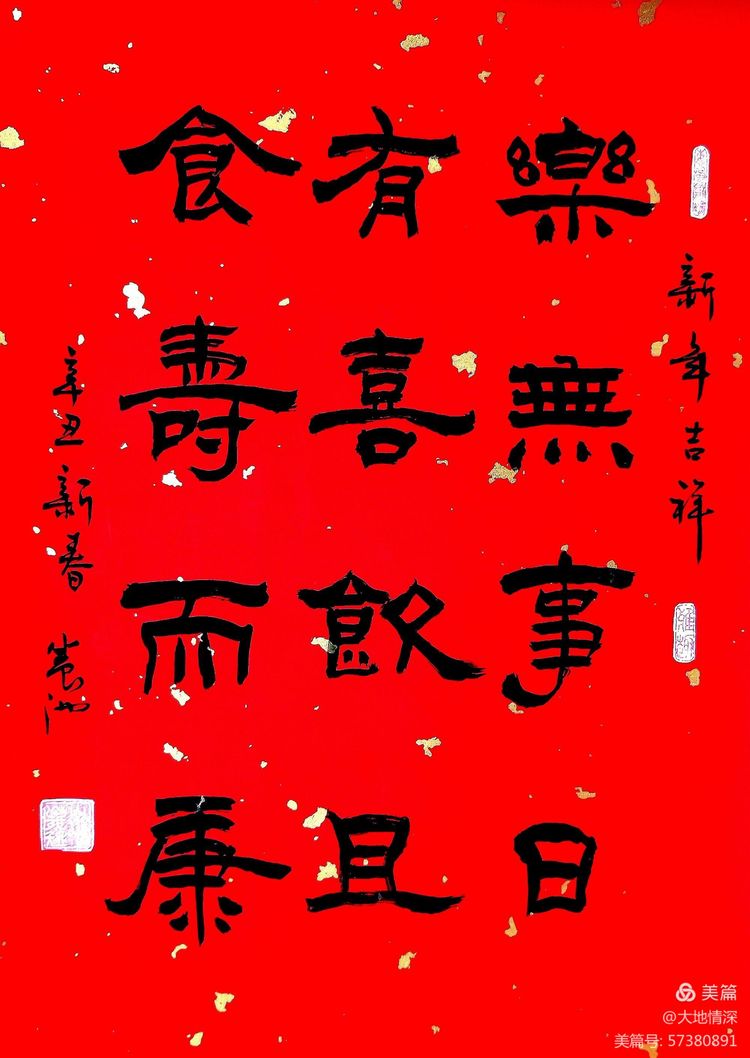 新年吉祥
樂無事日
有喜飲且
食壽而康
辛丑新春
美篇
@大地情深
美篇号: 57380891